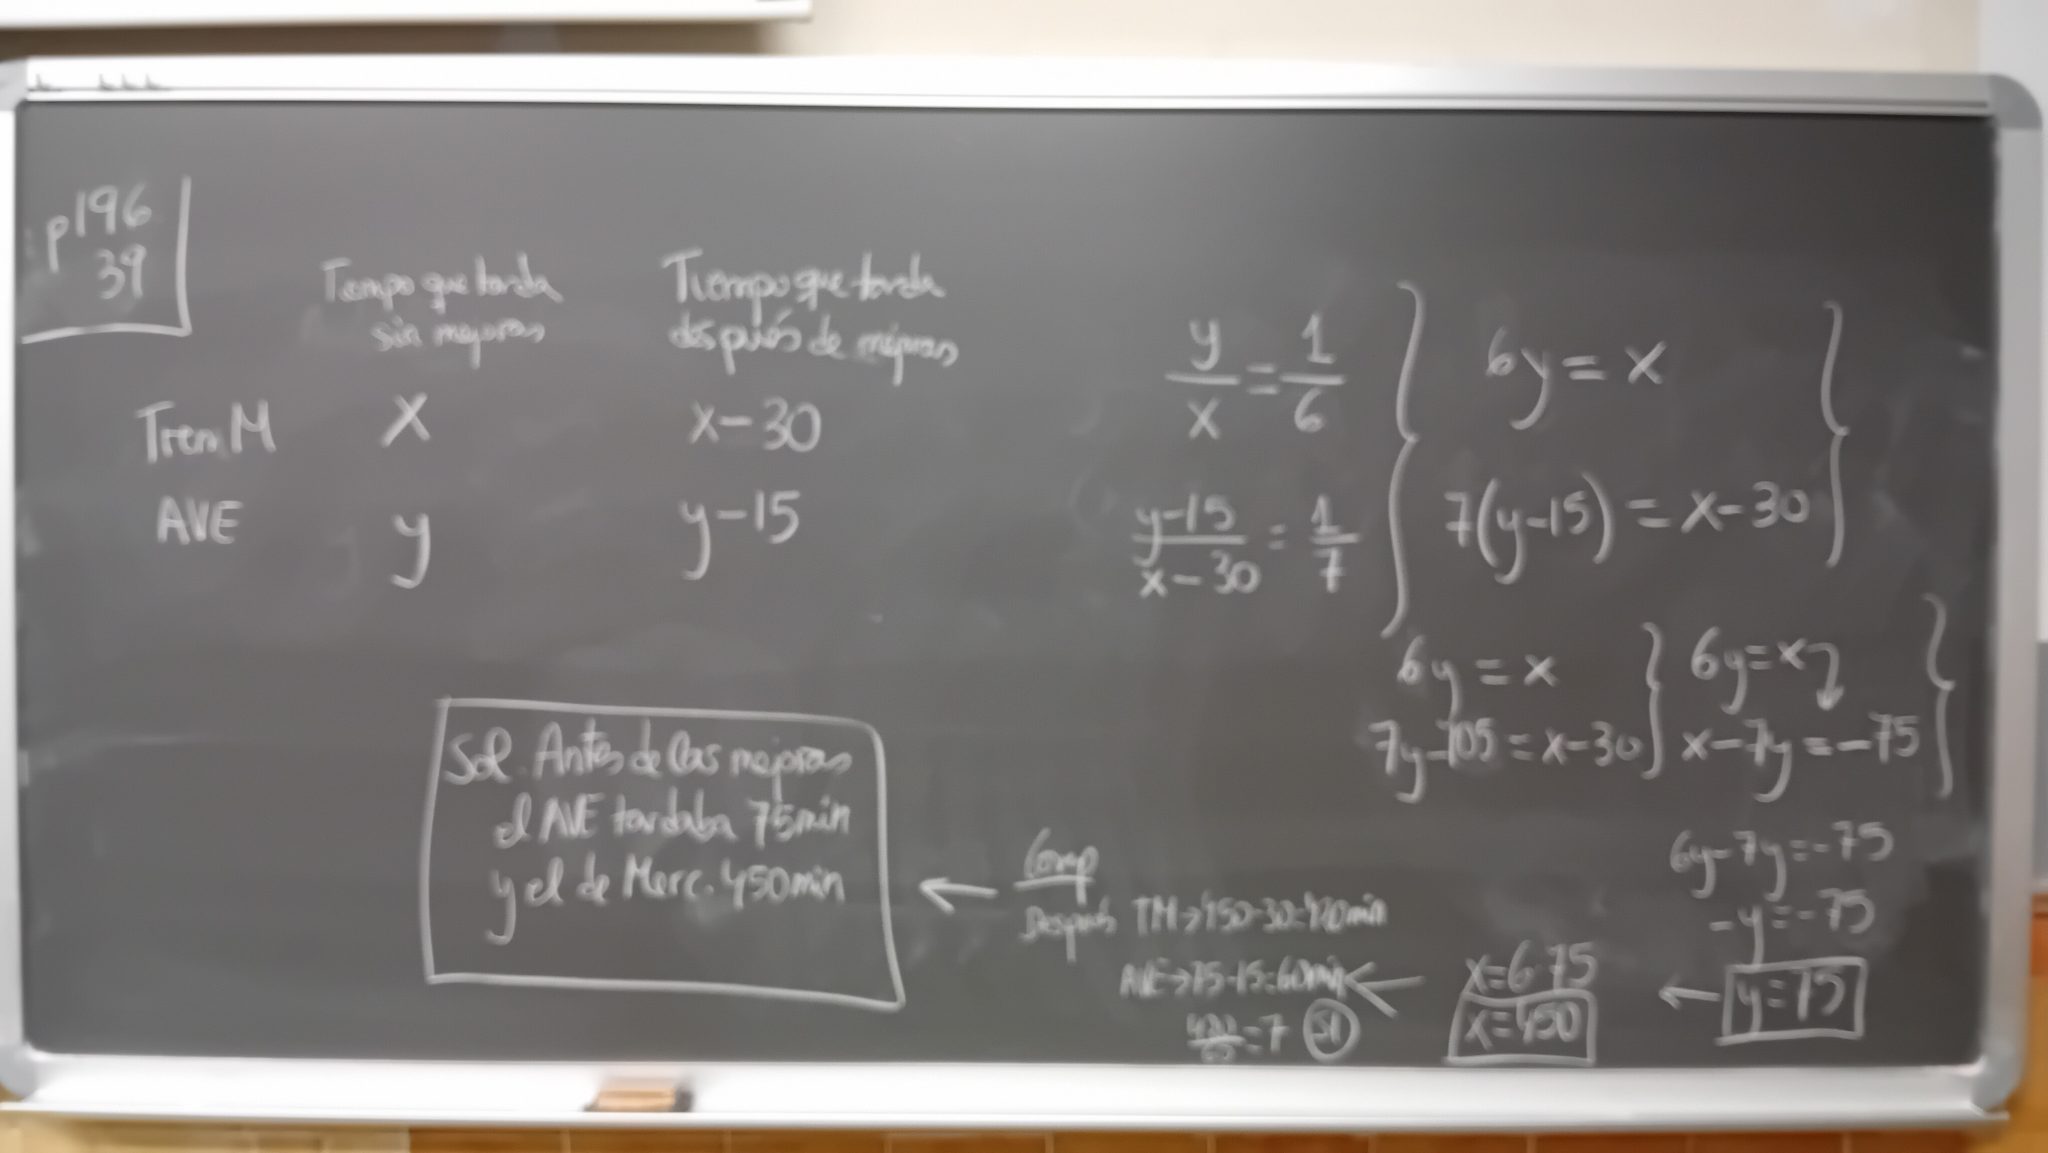 p196
39
Tiempo que tarda
sin mejoras
Tiempo que tarda
después de mejoras
Tren M x x-30
AVE y y-15
y/x = 1/6
(y-15)/(x-30) = 1/7
6y = x
7(y-15) = x-30
6y = x
7y-105 = x-30
6y=x
x-7y=-75
6y-7y=-75
-y=-75
y=75
x=6·75
x=450
Comp
Después TM→450-30=420min
AVE→75-15=60min
420/60=7 SI
Sol. Antes de las mejoras
el AVE tardaba 75min
y el de Merc. 450min